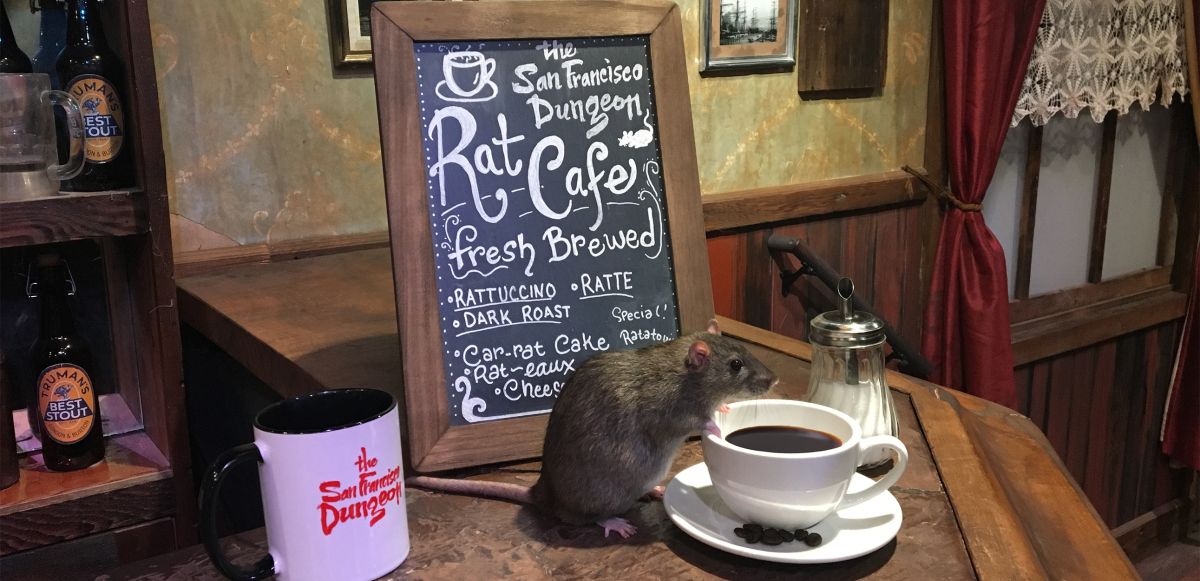 the
San Francisco
Dungeon
Rat Cafe
fresh Brewed
• RATTUCCINO • RATTE
• DARK ROAST
Special!
• Car-rat Cake
• Rat-eaux
TRUMAN'S
BEST
STOUT
TRUMAN'S
BEST
STOUT
the
San Francisco
Dungeon